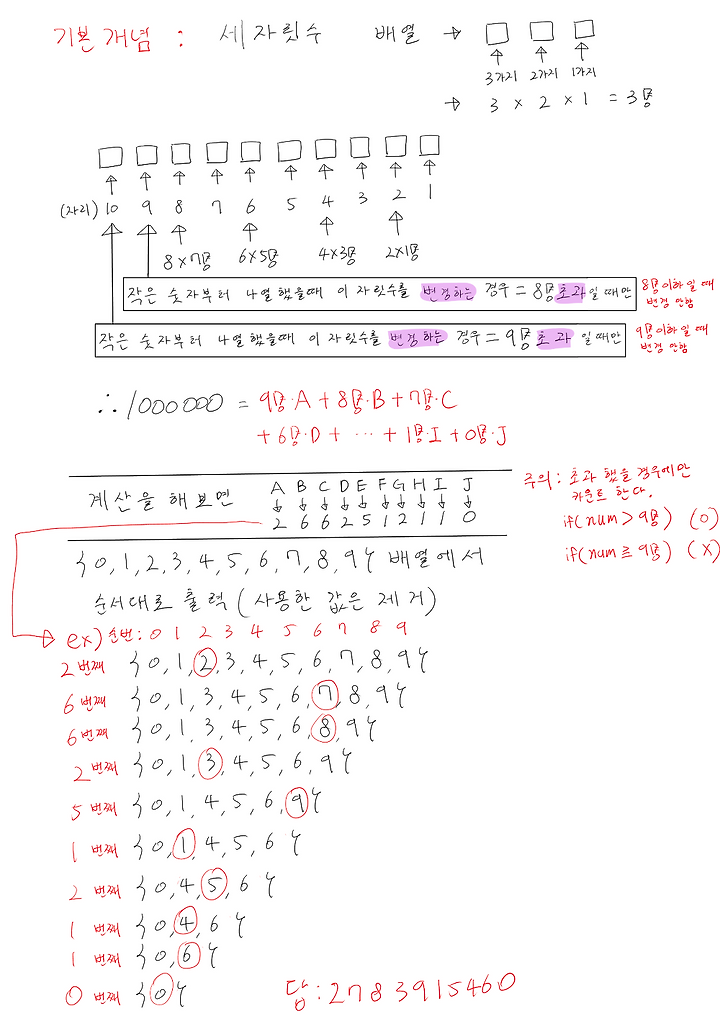 기본개념 : 세자릿수 배열 →
3가지 2가지 1가지
→ 3 × 2 × 1 = 3!
(자리) 10 9 8 7 6 5 4 3 2 1
8×7! 6×5! 4×3! 2×1!
작은 숫자부터 나열했을때 이 자릿수를 변경하는 경우 = 8! 초과일 때만
8! 이하일 때
변경 안함
작은 숫자부터 나열했을때 이 자릿수를 변경하는 경우 = 9! 초과 일때만
9! 이하일 때
변경 안함
∴ 1000000 = 9!·A + 8!·B + 7!·C
+ 6!·D + ··· + 1!·I + 0!·J
계산을 해보면
A B C D E F G H I J
↓ ↓ ↓ ↓ ↓ ↓ ↓ ↓ ↓ ↓
2 6 6 2 5 1 2 1 1 0
주의 : 초과 했을 경우에만
카운트 한다.
if(num > 9!) (O)
if(num ≥ 9!) (X)
{0, 1, 2, 3, 4, 5, 6, 7, 8, 9} 배열에서
순서대로 출력 (사용한 값은 제거)
ex) 순번 : 0 1 2 3 4 5 6 7 8 9
2 번째 {0, 1, 2, 3, 4, 5, 6, 7, 8, 9}
6 번째 {0, 1, 3, 4, 5, 6, 7, 8, 9}
6 번째 {0, 1, 3, 4, 5, 6, 8, 9}
2 번째 {0, 1, 3, 4, 5, 6, 9}
5 번째 {0, 1, 4, 5, 6, 9}
1 번째 {0, 1, 4, 5, 6}
2 번째 {0, 4, 5, 6}
1 번째 {0, 4, 6}
1 번째 {0, 6}
0 번째 {0}
답 : 2783915460